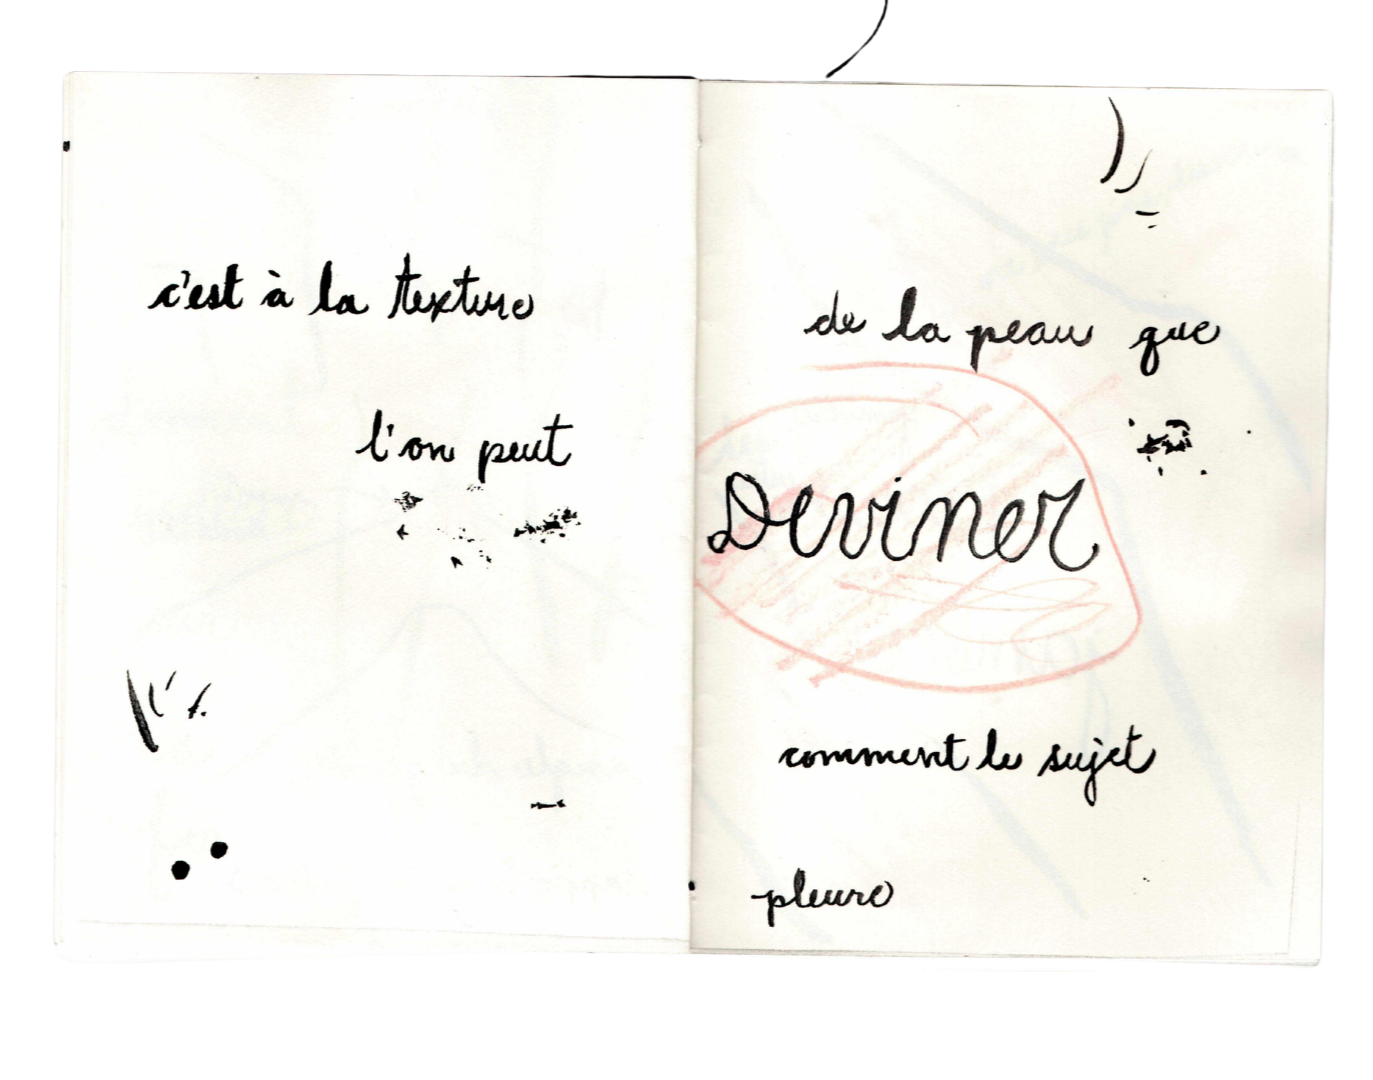 c'est à la texture
de la peau que
l'on peut
Deviner
comment le sujet
pleure